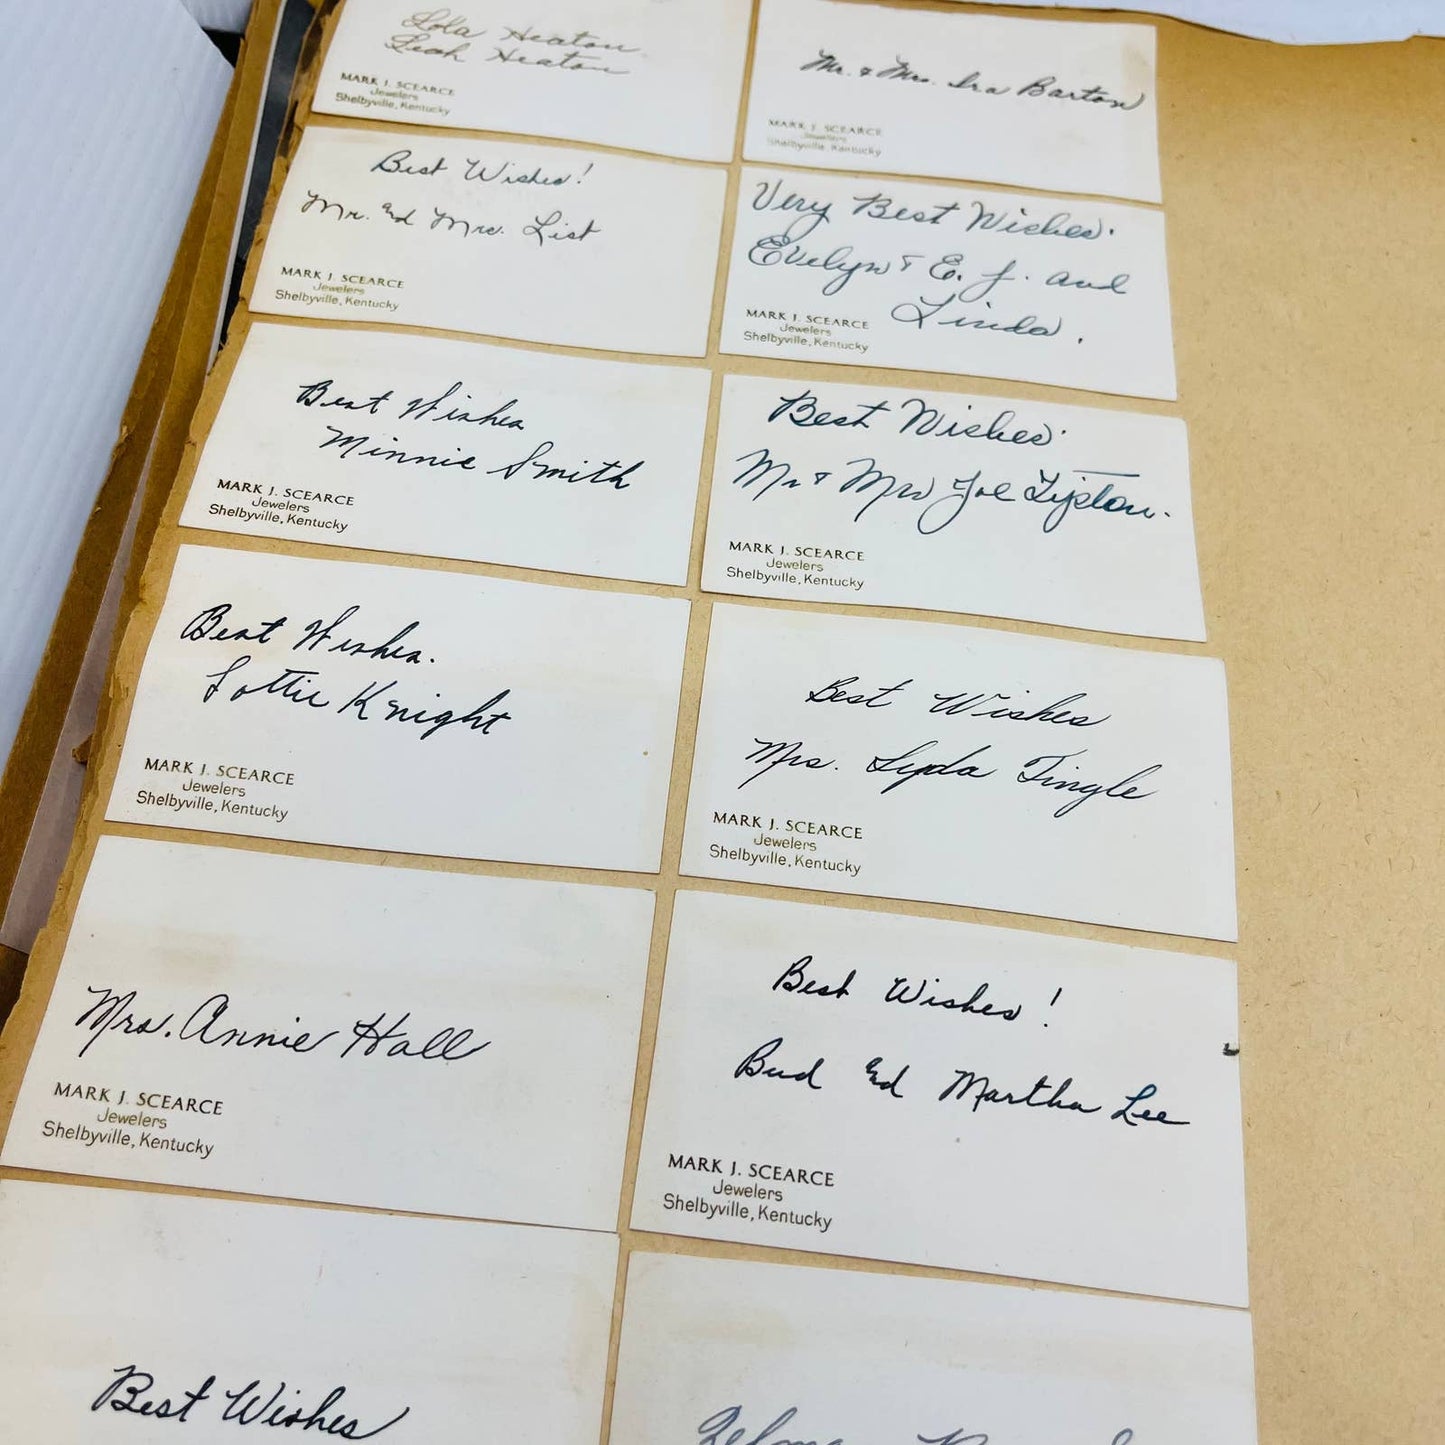 Lola Heaton
Leah Heaton
MARK J. SCEARCE
Jewelers
Shelbyville, Kentucky
Mr. & Mrs. Ira Barton
MARK J. SCEARCE
Jewelers
Shelbyville, Kentucky
Best Wishes!
Mr. and Mrs. List
MARK J. SCEARCE
Jewelers
Shelbyville, Kentucky
Very Best Wishes.
Evelyn & E. J. and
Linda.
MARK J. SCEARCE
Jewelers
Shelbyville, Kentucky
Best Wishes
Minnie Smith
MARK J. SCEARCE
Jewelers
Shelbyville, Kentucky
Best Wishes
Mr & Mrs Joe Tipton.
MARK J. SCEARCE
Jewelers
Shelbyville, Kentucky
Best Wishes.
Lottie Knight
MARK J. SCEARCE
Jewelers
Shelbyville, Kentucky
Best Wishes
Mrs. Lyda Tingle
MARK J. SCEARCE
Jewelers
Shelbyville, Kentucky
Mrs. Annie Hall
MARK J. SCEARCE
Jewelers
Shelbyville, Kentucky
Best Wishes!
Bud and Martha Lee
MARK J. SCEARCE
Jewelers
Shelbyville, Kentucky
Best Wishes